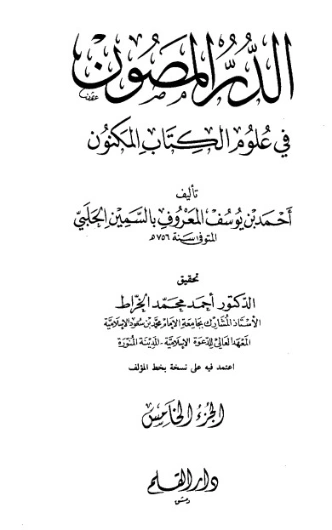 الدُّرُّ المَصُون
في عُلُوم الكِتَاب المَكنُون
تأليف
أَحْمَد بْن يُوسُف المَعْرُوف بِالسَّمِين الحَلَبِيّ
المتوفى سنة ٧٥٦ هـ
تحقيق
الدكتور أحمد محمد الخراط
الأستاذ المشارك بجامعة الإمام محمد بن سعود الإسلامية
المعهد العالي للدعوة الإسلامية - المدينة المنورة
اعتمد فيه على نسخة بخط المؤلف
الجزء الخامس
دار القلم
دمشق